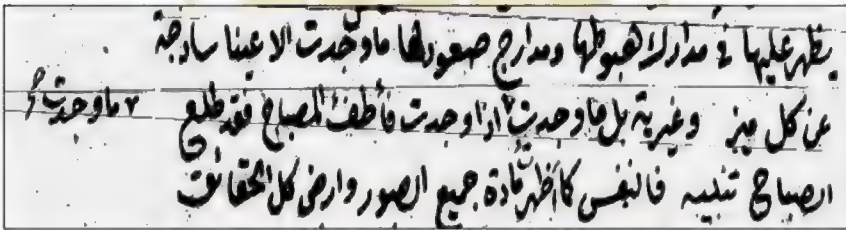 يظهر عليها في مدارك هبوطها ومدارج صعودها ما وجدت الا عينا ساذجة
عن كل ميز وغيرية بل ما وجدت اذا وجدت فأطف المصباح فقد طلع ما وجدت
الصباح تنبيه فالنفس كما ظهر مادة جميع الصور وارض كل الحقائق